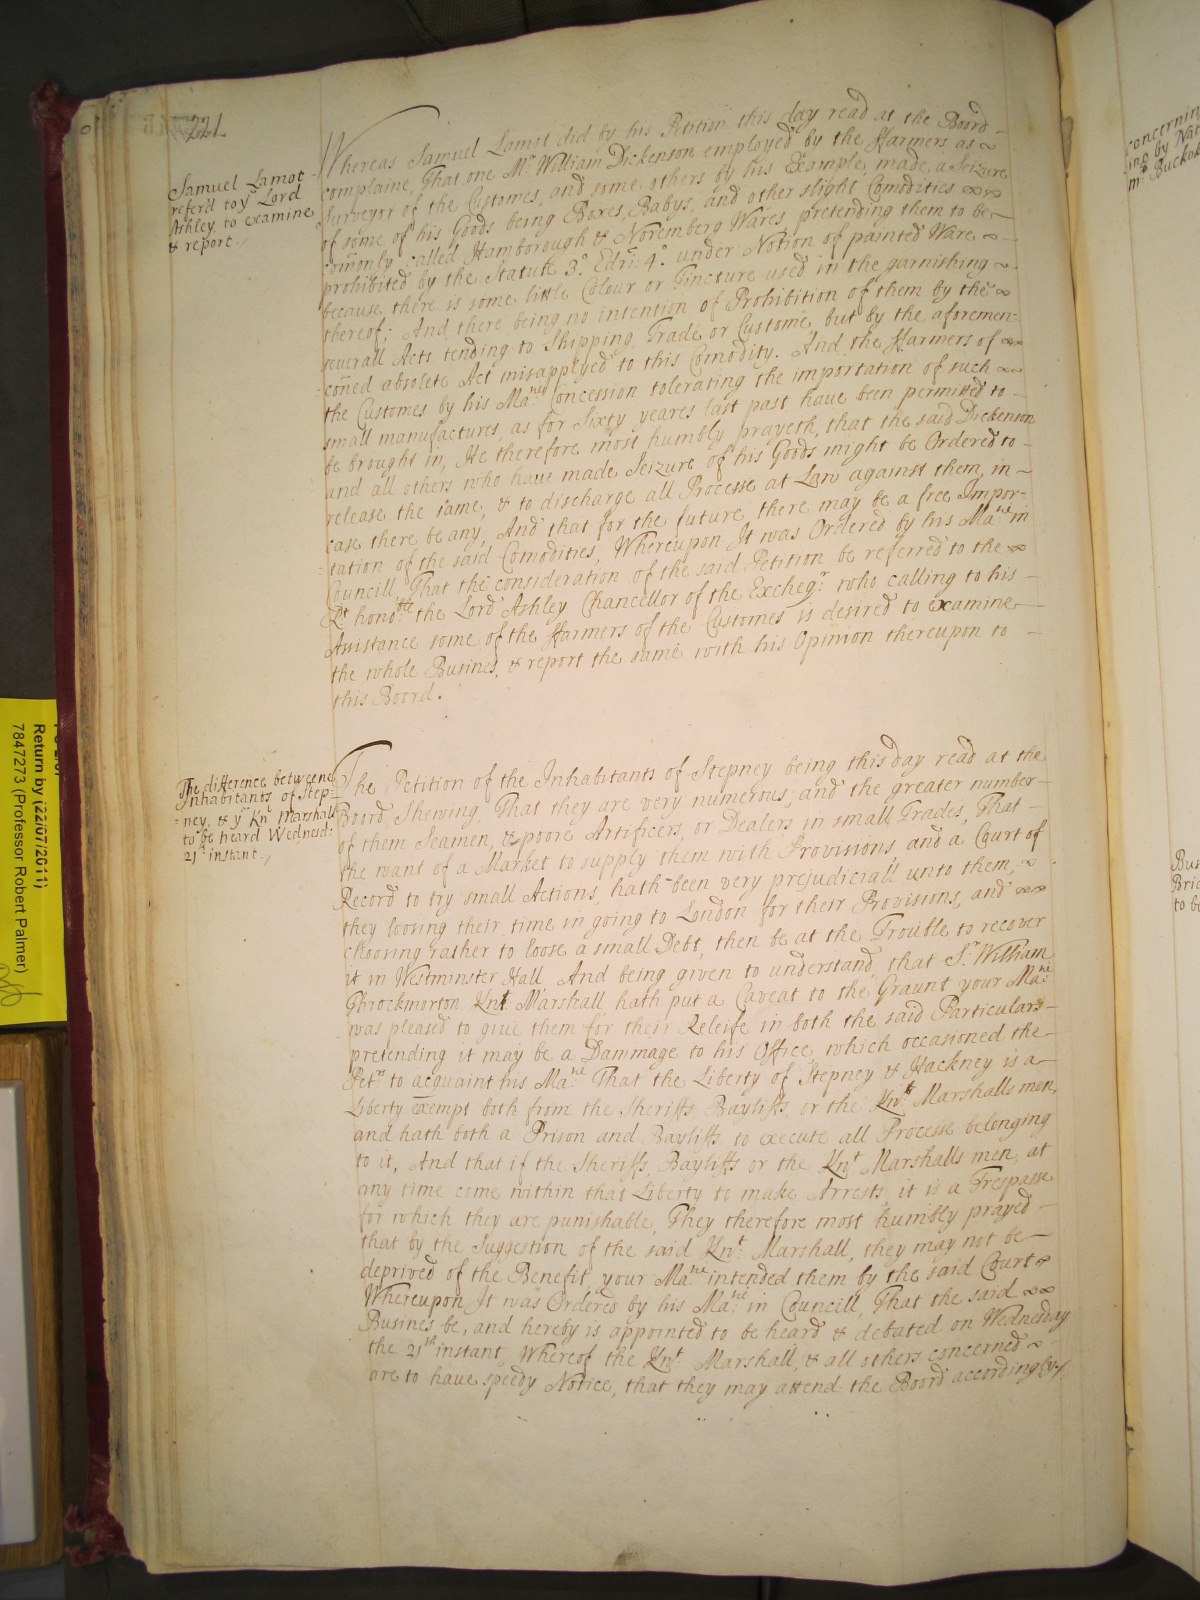 221
Samuel Lamot
referd to yᵉ Lord
Ashley, to examine
& report./
Whereas Samuel Lamot did by his Petition this day read at the Board
complaine, That one Mʳ William Dickenson employed by the Farmers as
Surveyor of the Customes, and some others by his Example, made a Seizure
of some of his Goods being Boxes, Babys, and other slight Comodities
comonly called Hamborough & Noremberg Wares, pretending them to be
prohibited by the Statute 3° Edri: 4ᵗ under Notion of painted Ware
because there is some little Colour or Tincture used in the garnishing
thereof; And there being no intention of Prohibition of them by the
severall Acts tending to Shipping, Trade or Custome, but by the aforemen=
=coned absolete Act misapplyed to this Comodity. And the Farmers of
the Customes by his Maᵗⁱᵉˢ Concession tolerating the importation of such
small manufactures, as for Sixty yeares last past have been permitted to
be brought in, He therefore most humbly prayeth, that the said Dickenson
and all others who have made Seizure of his Goods might be Ordered to
release the same, & to discharge all Processe at Law against them, in
case there be any, And that for the future there may be a free Impor=
=tation of the said Comodities, Whereupon It was Ordered by his Maᵗⁱᵉ in
Councill, That the consideration of the said Petition be referred to the
Rᵗ honoᵇˡᵉ the Lord Ashley Chancellor of the Excheqʳ who calling to his
Asistance some of the Farmers of the Customes is desired to examine
the whole Busines, & report the same with his Opinion thereupon to
this Board.
The difference betweene
Inhabitants of Step=
=ney, & yᵉ Knᵗ Marshall
to be heard Wednesd:
21ᵗʰ instant./
The Petition of the Inhabitants of Stepney being this day read at the
Board, Shewing, That they are very numerous, and the greater number
of them Seamen, & poore Artificers, or Dealers in small Trades, That
the want of a Market to supply them with Provisions and a Court of
Record to try small Actions, hath been very prejudiciall unto them,
they loosing their time in going to London for their Provisions, and
choosing rather to loose a small Debt, then be at the Trouble to recover
it in Westminster Hall And being given to understand, that Sʳ William
Throckmorton Knᵗ Marshall hath put a Caveat to the Graunt your Maᵗⁱᵉ
was pleased to give them for their Releife in both the said Particulars
pretending it may be a Dammage to his Office, which occasioned the
Petʳˢ to acquaint his Maᵗⁱᵉ That the Liberty of Stepney & Hackney is a
Liberty exempt both from the Sheriffs Bayliffs, or the Knᵗ Marshalls men,
and hath both a Prison and Bayliffs to execute all Processe belonging
to it, And that if the Sheriffs, Bayliffs or the Knᵗ Marshalls men, at
any time come within that Liberty to make Arrests, it is a Trespasse
for which they are punishable, They therefore most humbly prayed
that by the Suggestion of the said Knᵗ: Marshall, they may not be
deprived of the Benefit, your Maᵗⁱᵉ intended them by the said Court
Whereupon It was Ordered by his Maᵗⁱᵉ in Councill, That the said
Busines be, and hereby is appointed to be heard & debated on Wednesday
the 21ᵗʰ instant, Whereof the Knᵗ Marshall, & all others concerned
are to have speedy Notice, that they may attend the Board accordingly./
Return by (22/07/2011)
7847273 (Professor Robert Palmer)
concerning
ing by
mʳ
Bus
Bri
to be